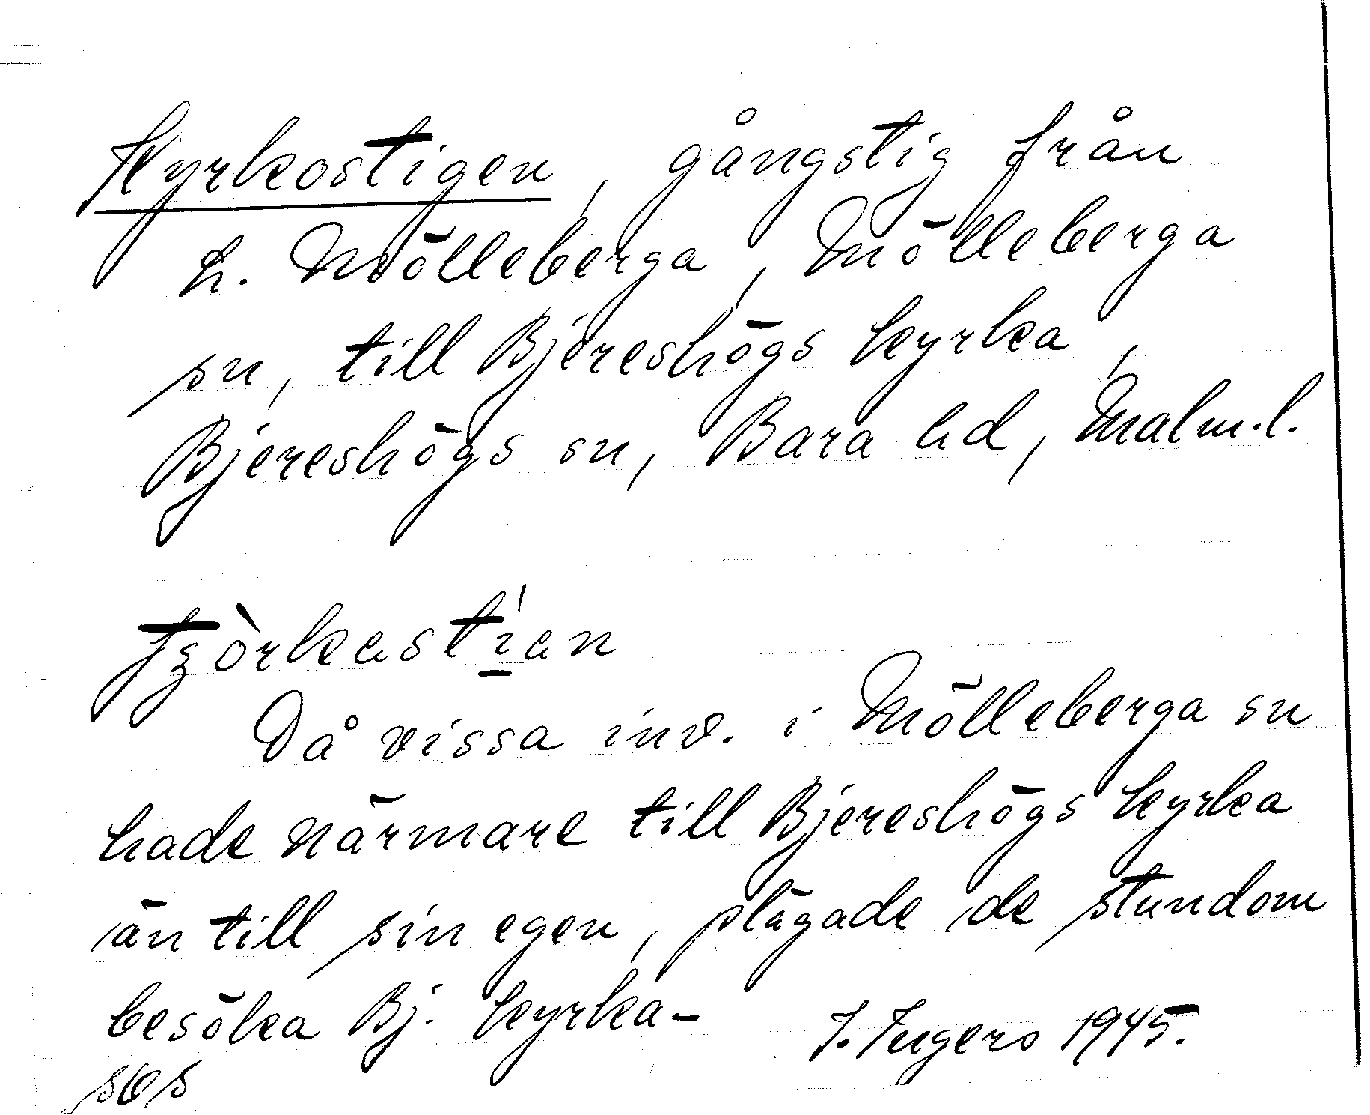 Kyrkostigen, gångstig från
L. Mölleberga, Mölleberga
sn, till Bjereshögs kyrka,
Bjereshögs sn, Bara hd, Malm.l.
Då vissa inv. i Mölleberga sn
hade närmare till Bjereshögs kyrka
än till sin egen, plägade de stundom
besöka Bj. kyrka-
I. Ingers 1945.